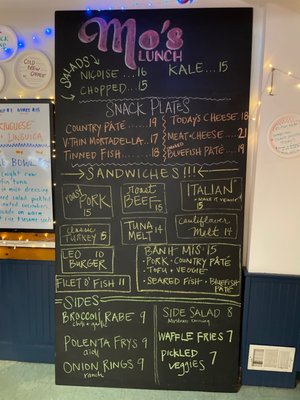 Mo's
LUNCH
SALADS
NICOISE...16
KALE...15
CHOPPED...15
SNACK PLATES
COUNTRY PATÉ...19
V. THIN MORTADELLA..17
TINNED FISH...18
TODAY'S CHEESE 18
MEAT & CHEESE...21
BLUEFISH PATÉ..19
SANDWICHES!!!
roast
PORK
15
roast
BEEF
15
ITALIAN
• MAKE IT VEGGIE
15
classic
TURKEY 5
TUNA
MELT 14
Cauliflower
MELT 14
LEO 10
BURGER
BANH MIS: 15
• PORK • COUNTRY PATE
• TOFU + VEGGIE
• SEARED FISH • BLUEFISH
PATE
FILET O' FISH 11
SIDES
BROCCOLI RABE 9
chili + garlic
POLENTA FRYS 9
aioli
ONION RINGS 9
ranch
SIDE SALAD 8
WAFFLE FRIES 7
PICKLED 7
veggies
COLD
BREW
PORTUGUESE
LINGUICA
BOWL